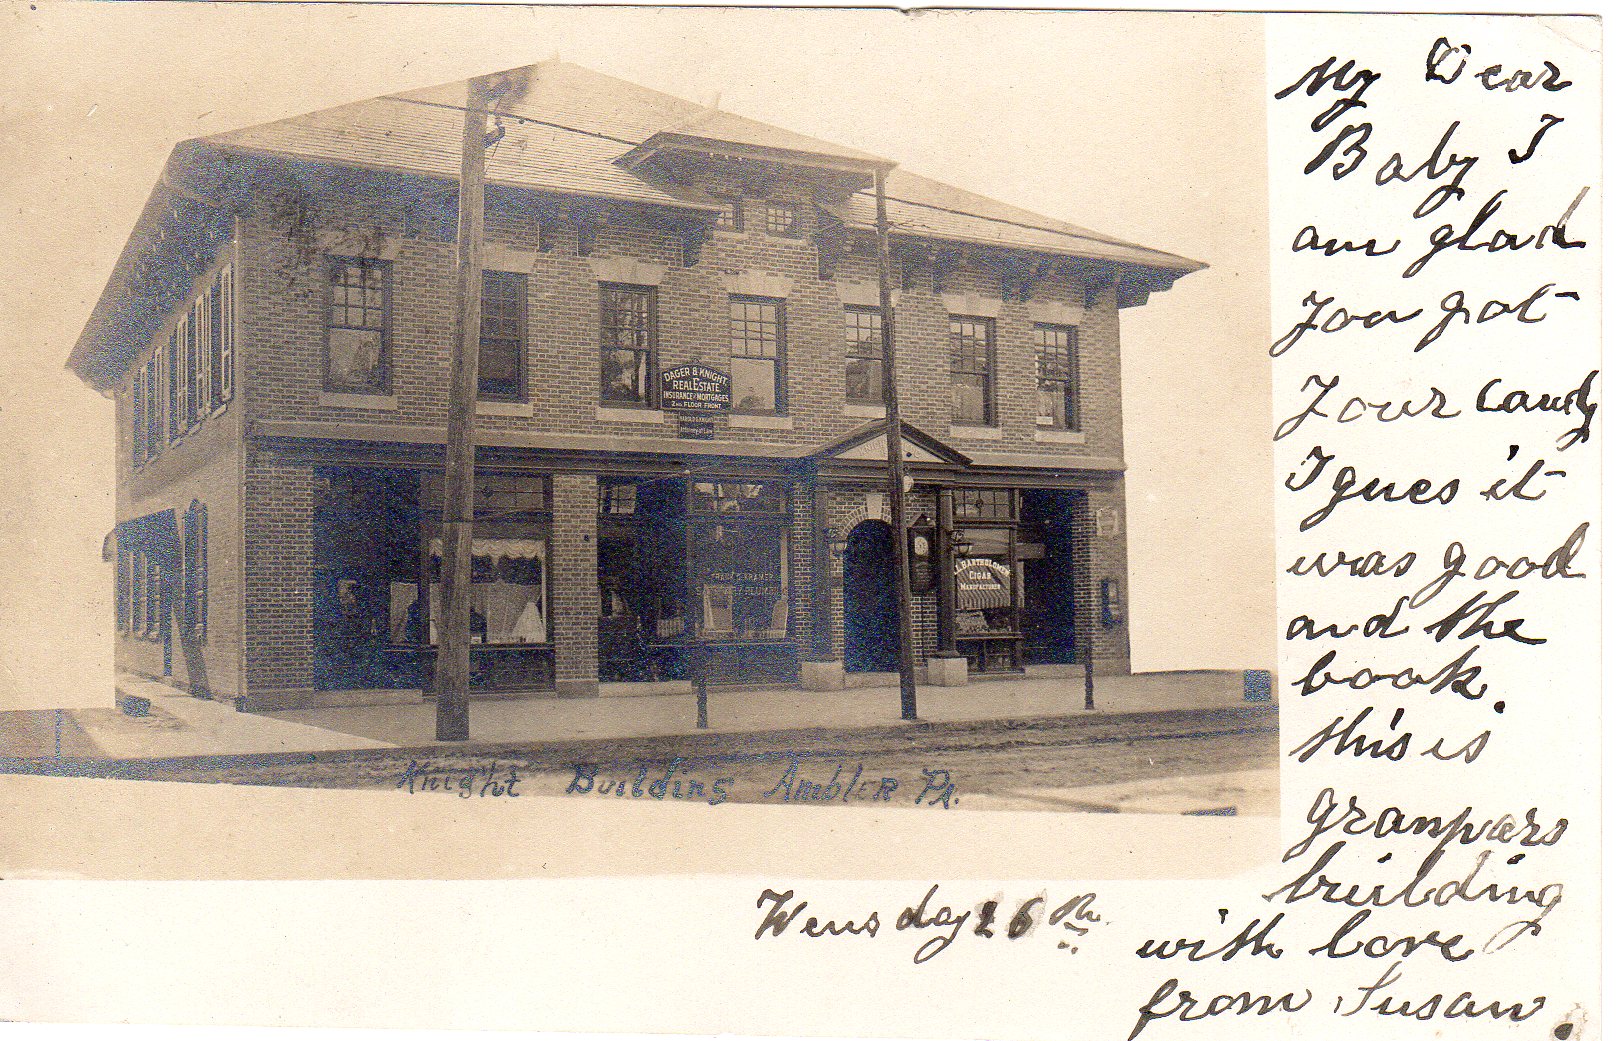 DAGER & KNIGHT
REAL ESTATE
INSURANCE & MORTGAGES
2ND FLOOR FRONT
BARTHOLOMEW
CIGAR
MANUFACTURER
Knight Building Ambler Pa.
My Dear
Baby I
am glad
you got
your candy
I gues it
was good
and the
book.
this is
Granpars
building
with love
from Susan.
Wensday 26th